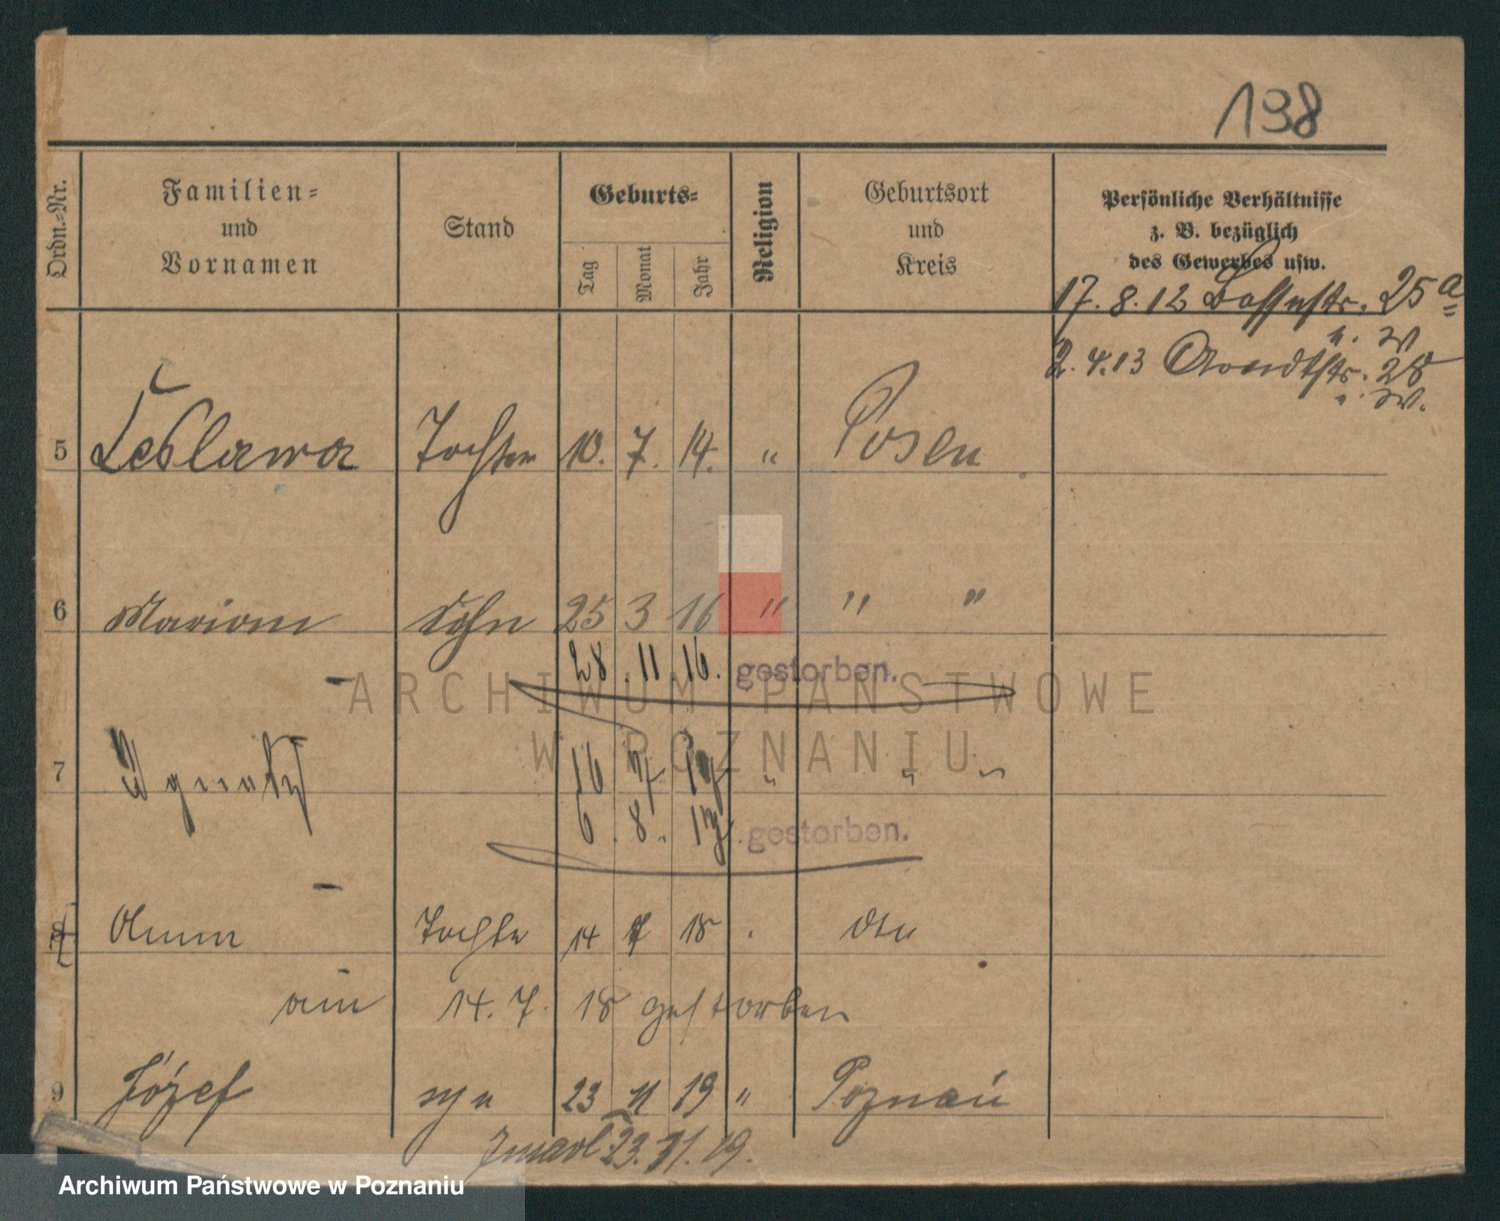 198
Ordn.=Nr.
Familien=
und
Vornamen
Stand
Geburts=
Tag
Monat
Jahr
Religion
Geburtsort
und
Kreis
Persönliche Verhältnisse
z. B. bezüglich
des Gewerbes usw.
17. 8. 12 25 a
2. 4. 13 28
5 Leslawa Tochter 10. 7. 14. " Posen
6 Mariom Sohn 25 3 16 " " "
28. 11. 16. gestorben.
7 16 7 17 " " "
6. 8. 17. gestorben.
8 Tochter 14 7 18
am 14. 7. 18 gestorben
9 Józef syn 23 11 19 " Poznań
zmarł 23. 11. 19.
ARCHIWUM PAŃSTWOWE
W POZNANIU
Archiwum Państwowe w Poznaniu